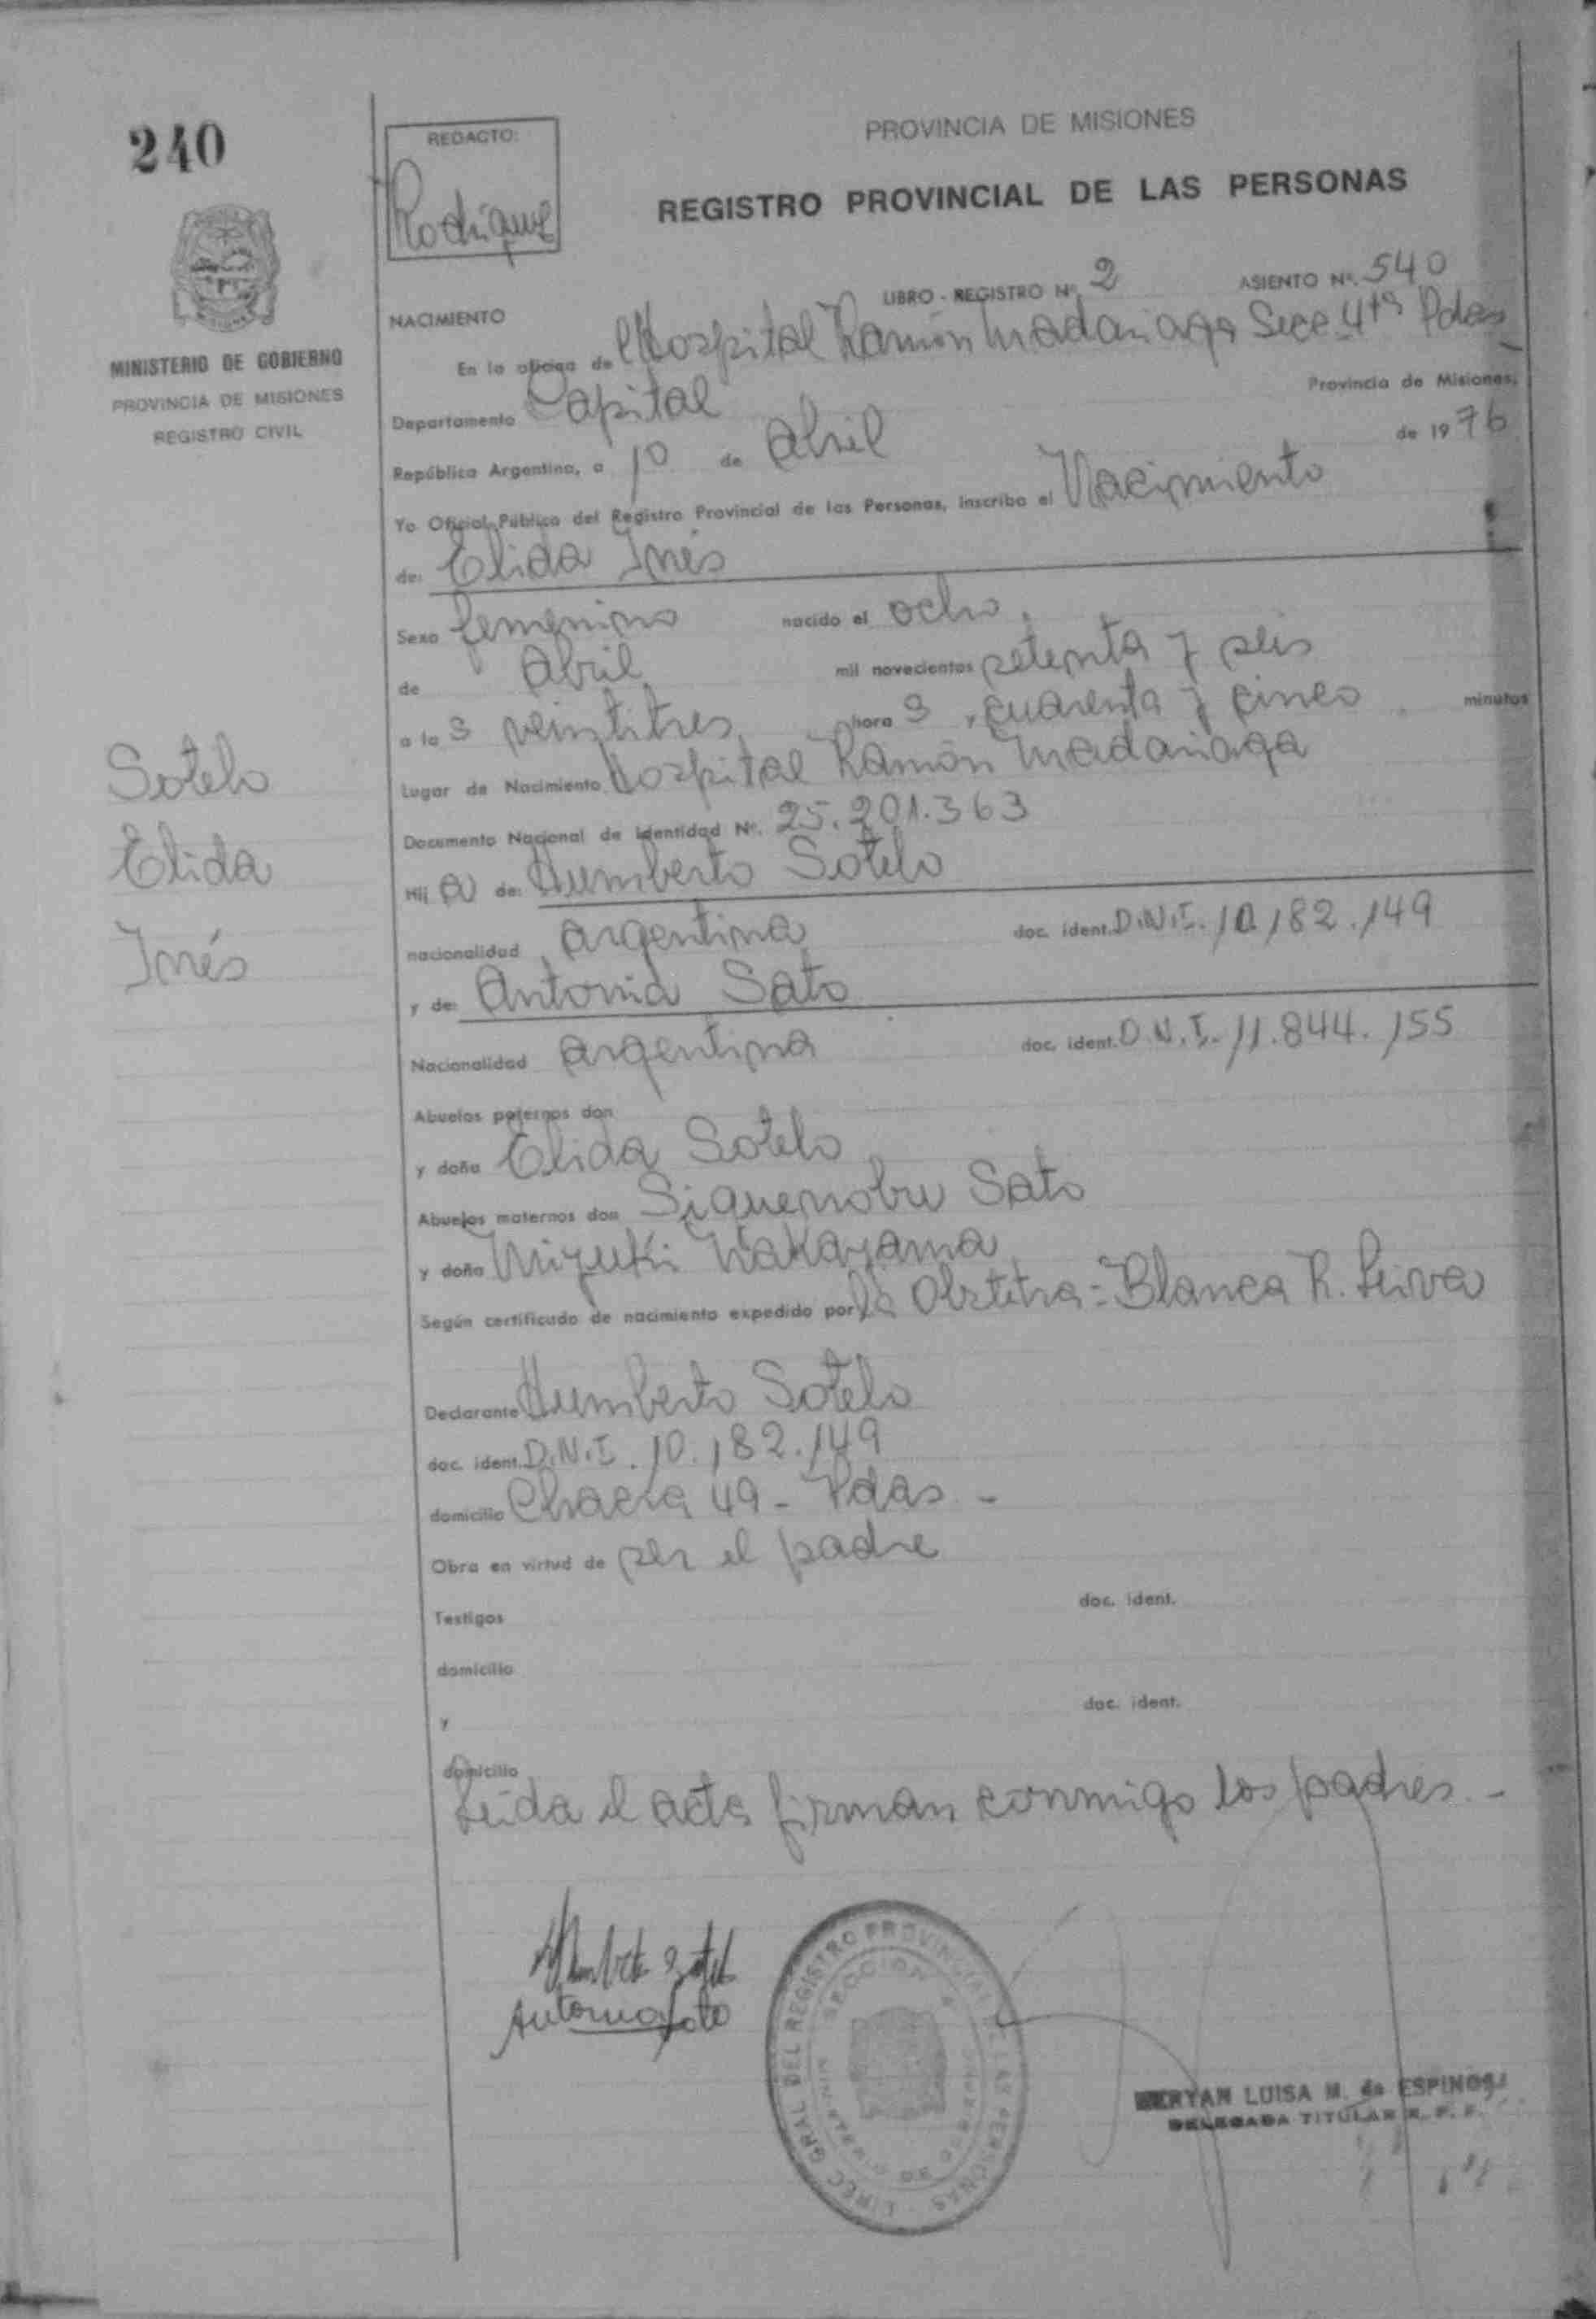 240
REDACTO:
Rodríguez
PROVINCIA DE MISIONES
REGISTRO PROVINCIAL DE LAS PERSONAS
MINISTERIO DE GOBIERNO
PROVINCIA DE MISIONES
REGISTRO CIVIL
LIBRO - REGISTRO Nº 2 ASIENTO Nº. 540
NACIMIENTO
En la oficina de Hospital Ramón Madariaga Secc. 4ta Pdas
Departamento Capital Provincia de Misiones,
República Argentina, a 10 de Abril de 1976
Yo Oficial Público del Registro Provincial de las Personas, inscribo el Nacimiento
de: Elida Inés
Sexo femenino nacido el ocho
de Abril mil novecientos setenta y seis
a las veintitres horas, cuarenta y cinco minutos
Lugar de Nacimiento Hospital Ramón Madariaga
Documento Nacional de Identidad Nº. 25.201.363
Sotelo
Elida
Inés
Hija de: Humberto Sotelo
nacionalidad argentina doc. ident. D.N.I. 10.182.149
y de: Antonia Sato
Nacionalidad argentina doc. ident. D.N.I. 11.844.155
Abuelos paternos don
y doña Elida Sotelo
Abuelos maternos don Siguenobu Sato
y doña Mizuki Nakayama
Según certificado de nacimiento expedido por la Obstetra - Blanca R. Leiva
Declarante Humberto Sotelo
doc. ident. D.N.I. 10.182.149
domicilio Chacra 49 - Pdas -
Obra en virtud de ser el padre
Testigos doc. ident.
domicilio
y doc. ident.
domicilio
Leida el acta firman conmigo los padres. -
Humberto Sotelo
Antonia Sato
DIREC. GRAL. DEL REGISTRO PROVINCIAL DE LAS PERSONAS
SECCION 4
MYRYAN LUISA M. de ESPINOSA
DELEGADA TITULAR R. P. P.